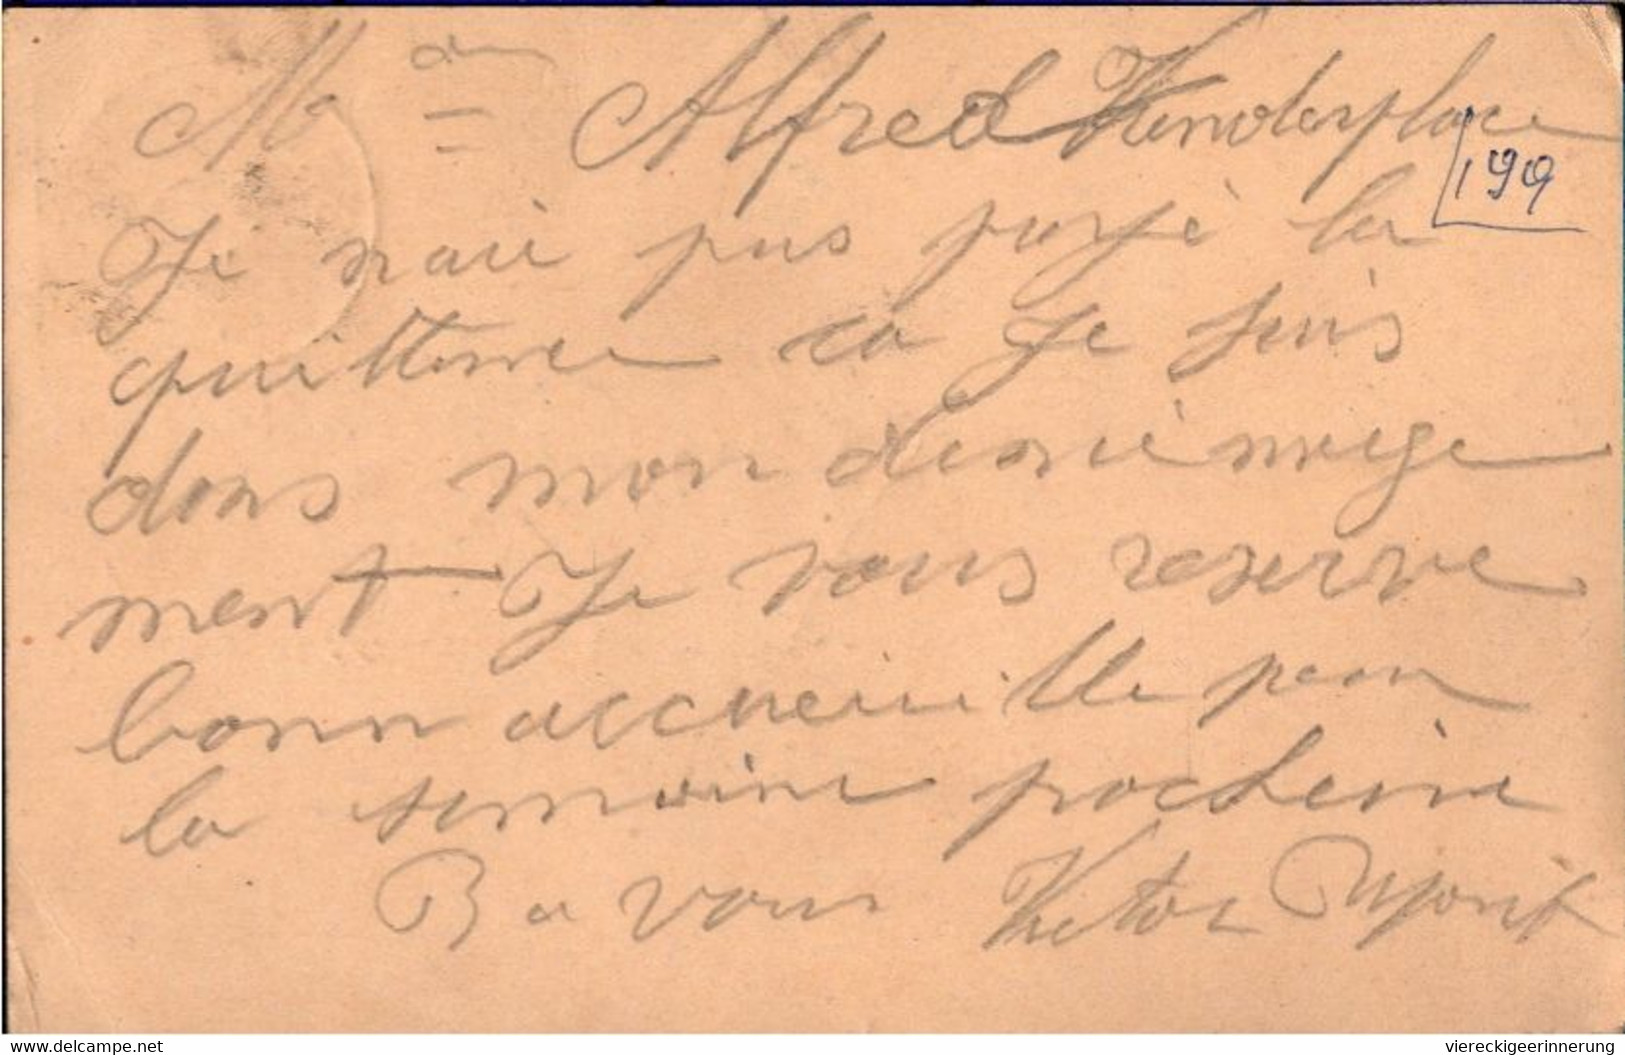 Alfred Vanderplace
199
Je naie pas payé la
quittence ca Je suis
dans mon deménege
ment Je vous reserve
bonn accueille pour
la semaine pochene
B a vous Victor Dupont
delcampe.net
viereckigeerinnerung